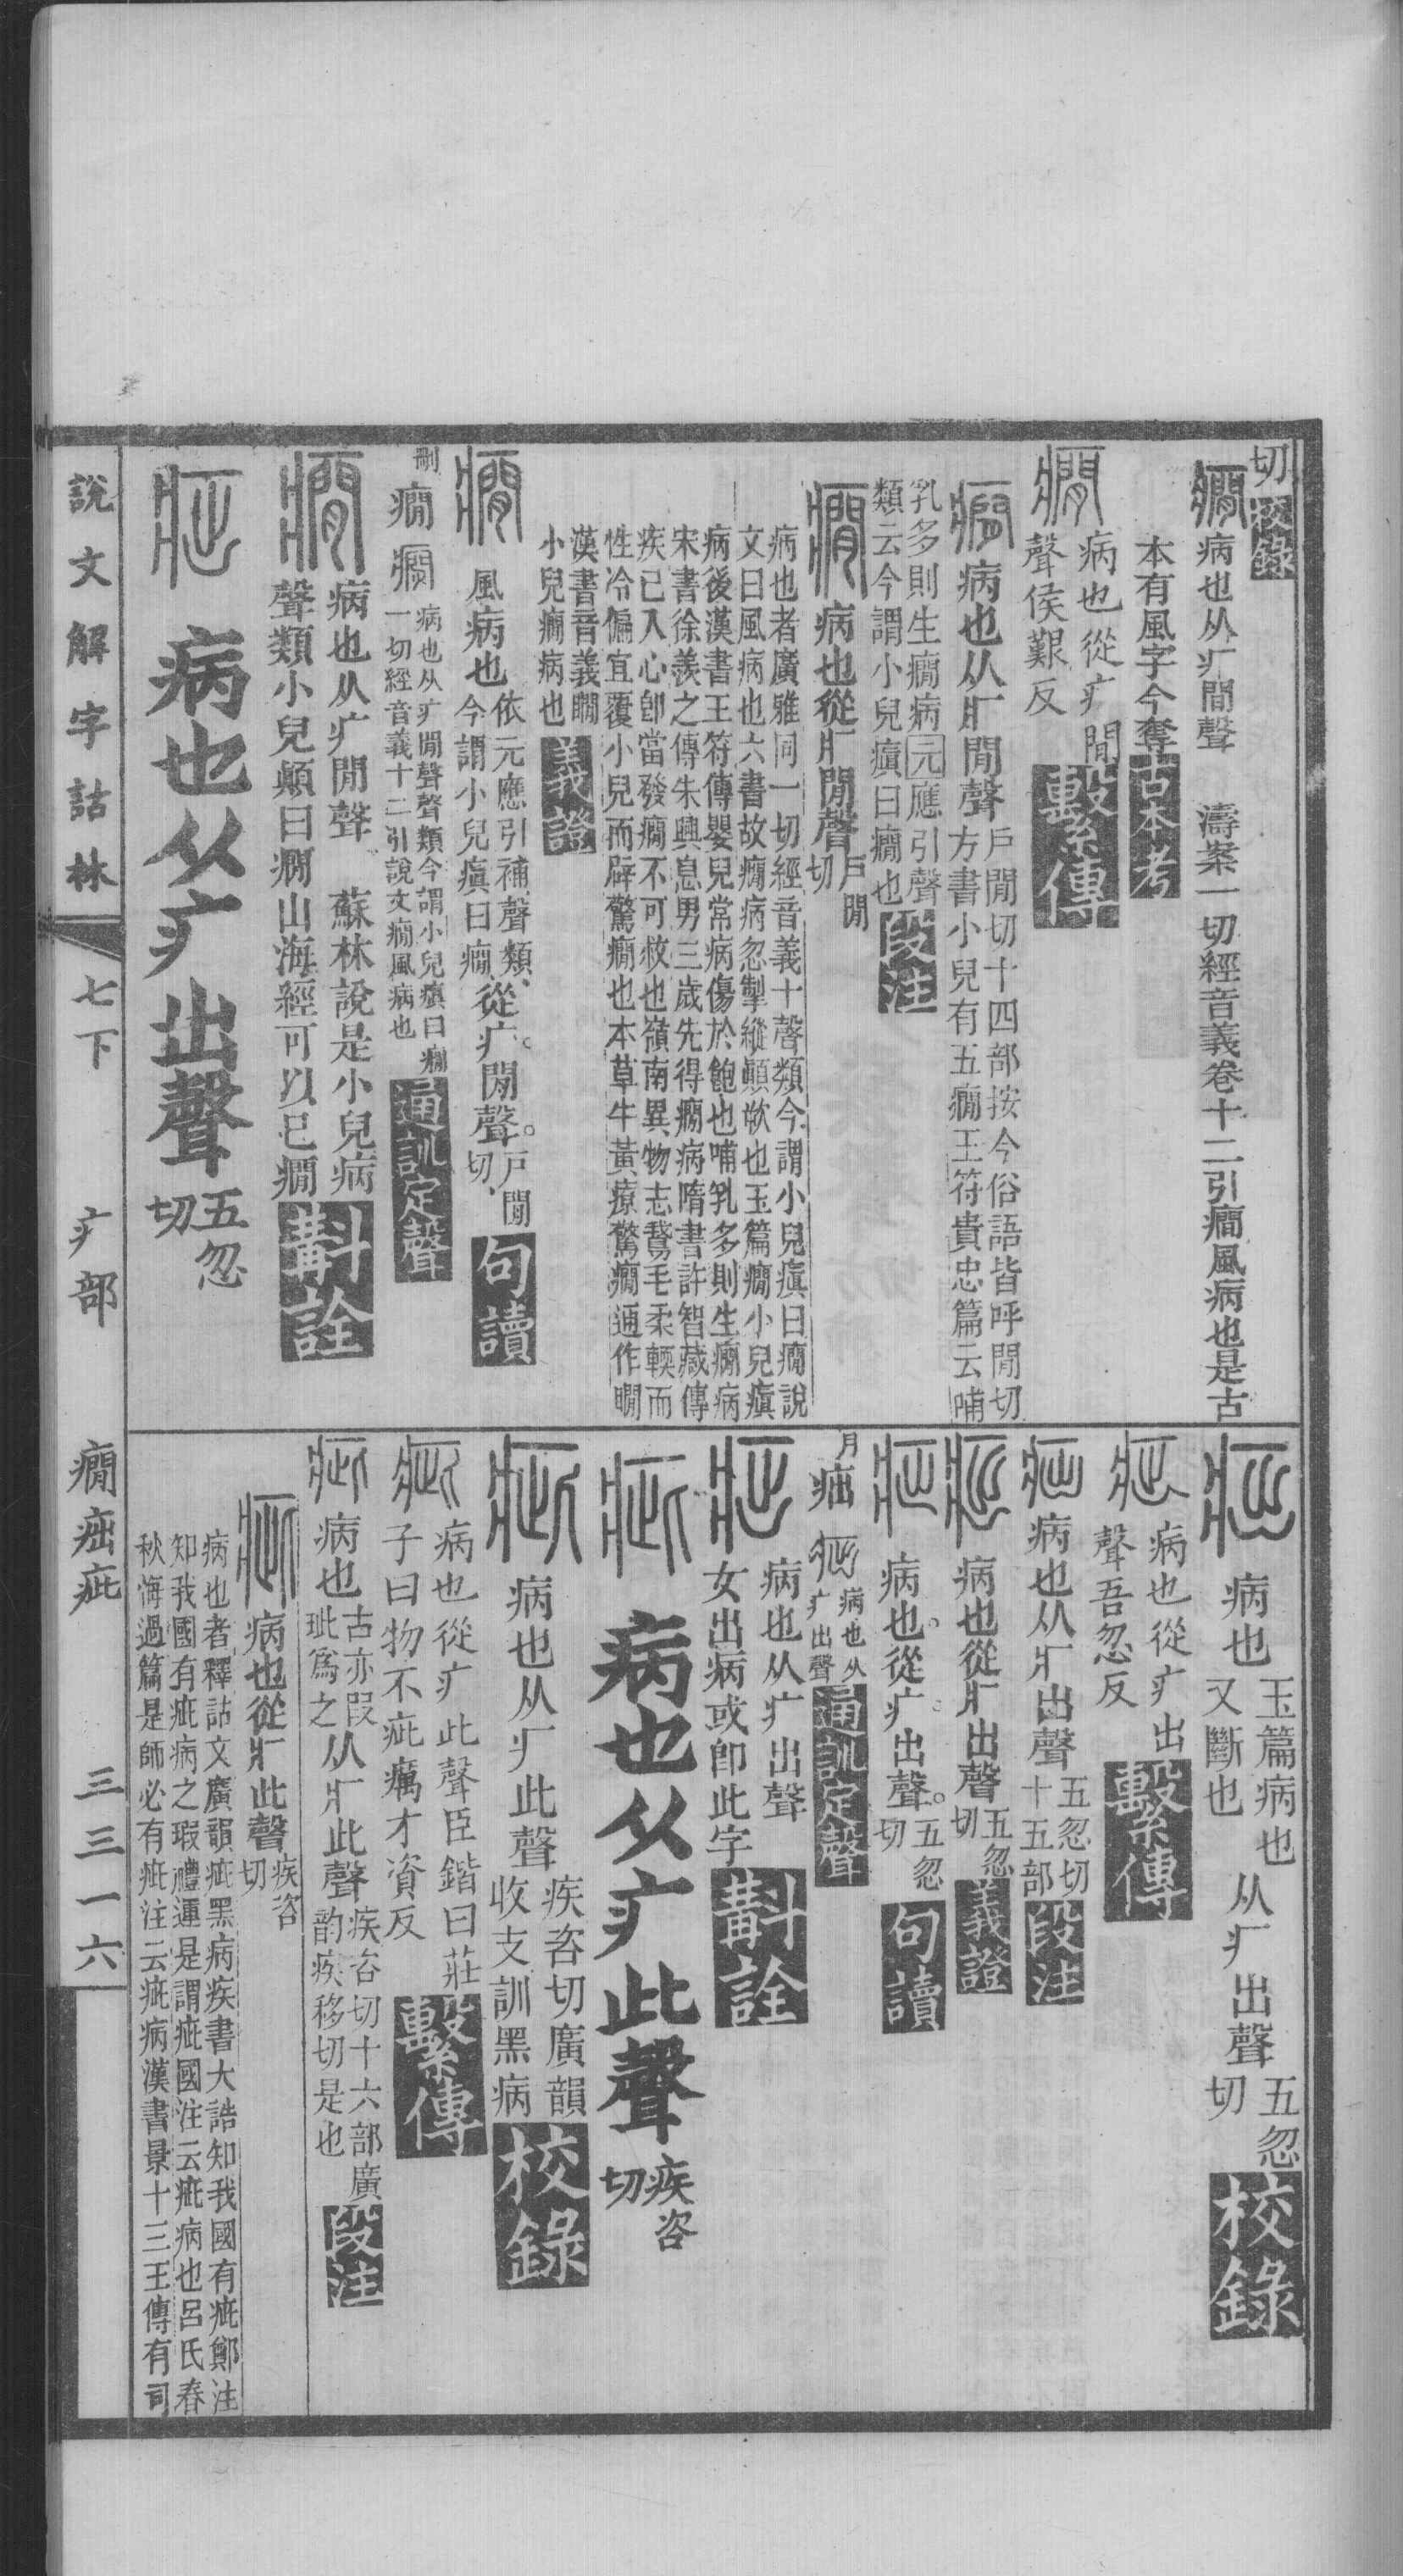 切校錄
癎病也从疒間聲　濤案一切經音義卷十二引癎風病也是古
本有風字今奪古本考
癎病也從疒閒
聲侯艱反繫傳
癎病也从疒閒聲戶閒切十四部按今俗語皆呼閒切
方書小兒有五癎王符貴忠篇云哺
乳多則生癎病元應引聲
類云今謂小兒瘨曰癎也段注
癎病也從疒閒聲戶閒
切
病也者廣雅同一切經音義十聲類今謂小兒瘨曰癎說
文曰風病也六書故癎病忽掣縱顚㰸也玉篇癎小兒瘨
病後漢書王符傳嬰兒常病傷於飽也哺乳多則生癎病
宋書徐羨之傳朱興息男三歲先得癎病隋書許智藏傳
疾已入心卽當發癎不可救也嶺南異物志鵞毛柔輭而
性冷偏宜覆小兒而辟驚癎也本草牛黃療驚癎通作瞷
漢書音義瞷
小兒癎病也義證
癎風病也依元應引補聲類
今謂小兒瘨曰癎從疒閒聲戶閒
切句讀
刪癎癎病也从疒閒聲聲類今謂小兒瘨曰癎
一切經音義十二引說文癎風病也通訓定聲
癎病也从疒閒聲　蘇林說是小兒病
聲類小兒顚曰癎山海經可以已癎斠詮
疷病也从疒出聲五忽
切
說文解字詁林　七下　疒部　癎疷疵　三三一六
疷病也玉篇病也
又斷也从疒出聲五忽
切校錄
疷病也從疒出
聲吾忽反繫傳
疷病也从疒出聲五忽切
十五部段注
疷病也從疒出聲五忽
切義證
疷病也從疒出聲五忽
切句讀
月疷疷病也从
疒出聲通訓定聲
疷病也从疒出聲
女出病或卽此字斠詮
疵病也从疒此聲疾咨
切
疵病也从疒此聲疾咨切廣韻
收支訓黑病校錄
疵病也從疒此聲臣鍇曰莊
子曰物不疵癘才資反繫傳
疵病也古亦叚
玼爲之从疒此聲疾咨切十六部廣
韵疾移切是也段注
疵病也從疒此聲疾咨
切
病也者釋詁文廣韻疵黑病疾書大誥知我國有疵鄭注
知我國有疵病之瑕禮運是謂疵國注云疵病也呂氏春
秋悔過篇是師必有疵注云疵病漢書景十三王傳有司